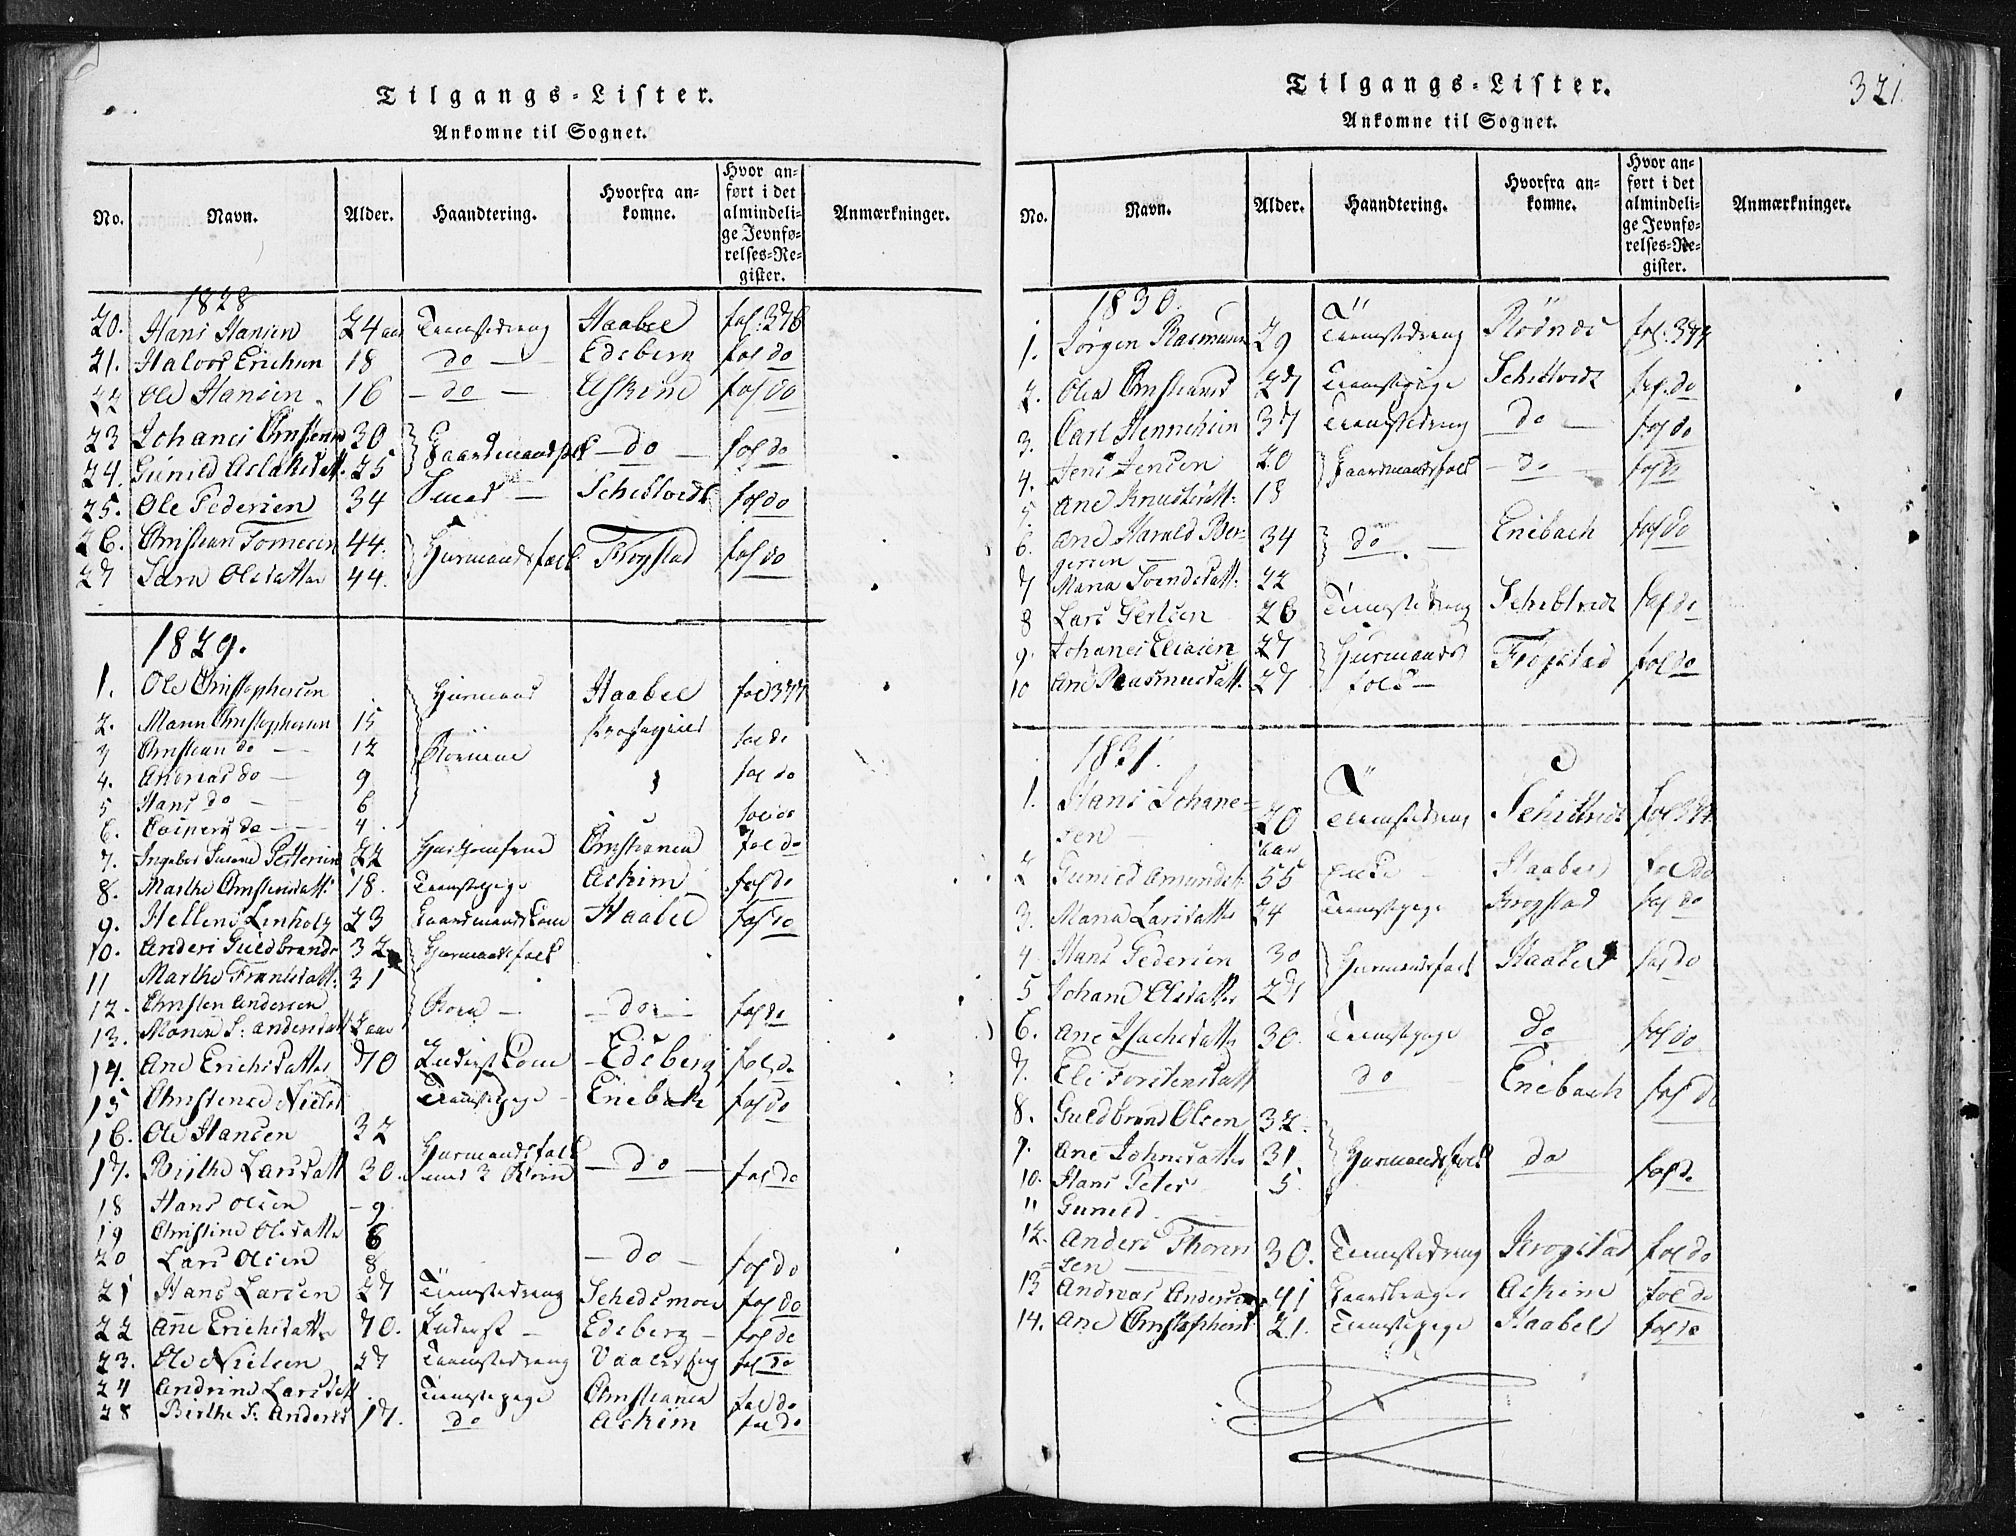 Tilgangs-Lister.
Ankomne til Sognet.
No. Navn. Alder. Haandtering. Hvorfra ankomne. Hvor anført i det almindelige Jevnførelses-Register. Anmærkninger.
1828
20. Hans Hansen 24 aar Tienestedreng Haabøl fol: 376
21. Halvor Erichsen 18 do Edsberg fol do
22 Ole Hansen 16 do Askim fol do
23 Johanes Christens 30 Gaardmandsfolk do fol do
24. Gunild Aslaksdatt. 25
25. Ole Pedersen 34 Smed Schibtvedt fol do
26. Christian Tomesen 44. Huusmandsfolk Trøgstad fol do
27 Sara Olsdatter 44.
1829.
1. Ole Christophersen Huusmand Haabøl fol 377
2. Maren Christophersen 15
3 Christian do 12 Børnene fol do
4. Andreas do 9 fol do
5 Hans do 6
6. do 4 fol do
7. Ingebor Pettersen 22 Christiania fol do
8. Marthe Christensdatt: 18. Tienestepige Askim fol do
9. Hellene Linholz 23 Gaardmandskone Haabøl fol do
10. Anders Guldbrands 32 Huusmandsfolk
11 Marthe Frantsdatt: 31
12. Christen Andersen Børn do fol do
13. S: Andersdatt 2 aar
14. Ane Erichsdatter 70 Inderst Kone Edsberg fol do
15 Christence Nielsd Tienestepige Enebak fol do
16. Ole Hansen 32 Huusmandsfolk
17. Birthe Larsdatt 30. med 3 Børn do fol do
18 Hans Olsen 9
19 Christine Olsdatter 6
20 Lars Olsen 8 do fol do
21 Hans Larsen 27 Tienestedreng Schedsmoe fol do
22 Ane Erichsdatter 70. Inderst Edsberg fol do
23. Ole Nielsen 27 Tienestedreng Vaaler fol do
24 Andrine Larsdatt Tienestepige Christiania fol do
28 Birthe S: Andersd 17. do Askim fol do
Tilgangs-Lister.
321.
Ankomne til Sognet.
No. Navn. Alder. Haandtering. Hvorfra ankomne. Hvor anført i det almindelige Jevnførelses-Register. Anmærkninger.
1830.
1. Jørgen Rasmusen 29 Tienestedreng Rødnes fol. 377
2. Olea Christiansd 27 Tienestepige Schibtvedt fol. do
3. Carl Hennehsen 37 Tienestedreng do fol do
4. Jens Jensen 20 Gaardmandsfolk do fol do
5. Ane Knudsdatt: 18
6. Ane Harald Ber- 34 do Enebach fol do
gersen
7 Maria Svendsdatt. 22
8 Lars Gertsen 26 Tienestedreng Schibtvedt fol do
9. Johanes Eliasen 27 Huusmands Trøgstad fol do
10 Ane Rasmusdatt. 27 folk
1831.
1. Hans Johane- 20 Tienestedreng Schibtvedt fol 377
sen aar
2 Gunild Amundsd. 55 Enke Haabøl fol do
3. Maria Larsdatter 24 Tienestepige Krogstad fol do
4 Hans Pedersen 30 Huusmandsfolk Haabøl fol do
5 Johane Olsdatter 27
6. Ane Isachsdatter 30. Tienestepige do fol do
7. Eli Torstensdatt do Enebach fol do
8. Guldbrand Olsen 32.
9. Ane Johnsdatter 31. Huusmandsfolk do fol do
10. Hans Peter 5.
11 Gunild
12. Anders Thorer 30. Tienestedreng Krogstad fol do
sen
13 Andreas Andersen 41 Gaardbruger Askim fol do
14. Ane Christophersd 21. Tienestepige Haabøl fol do